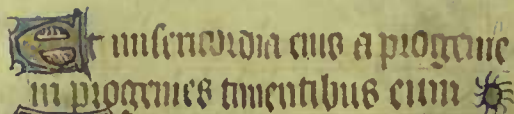 Et misericordia eius a progenie
in progenies timentibus eum